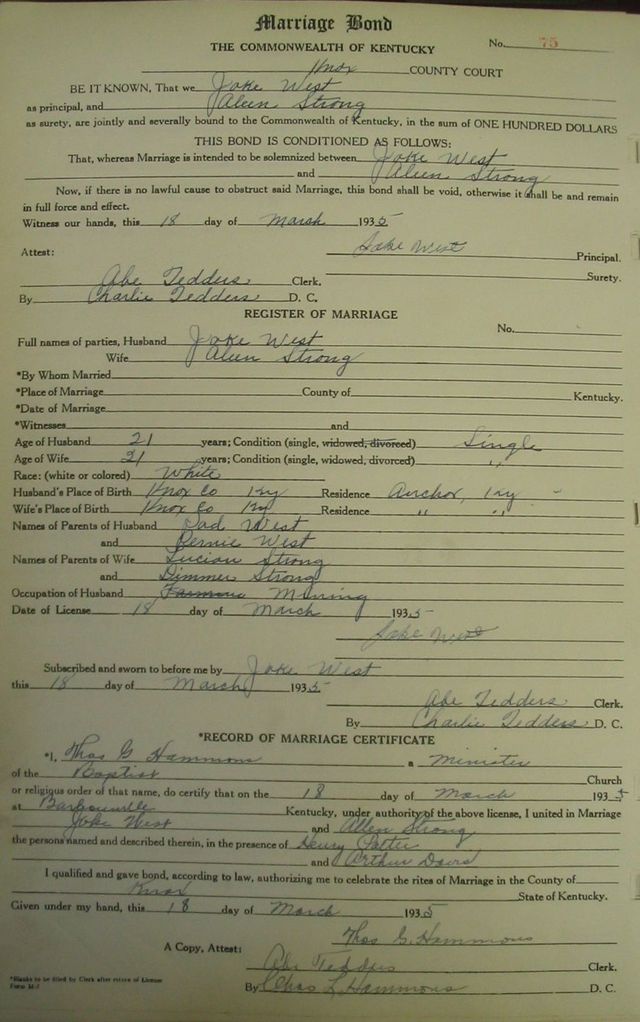 Marriage Bond
THE COMMONWEALTH OF KENTUCKY
No. 75
Knox COUNTY COURT
BE IT KNOWN, That we Jake West
as principal, and Aleen Strong
as surety, are jointly and severally bound to the Commonwealth of Kentucky, in the sum of ONE HUNDRED DOLLARS
THIS BOND IS CONDITIONED AS FOLLOWS:
That, whereas Marriage is intended to be solemnized between Jake West
and Aleen Strong
Now, if there is no lawful cause to obstruct said Marriage, this bond shall be void, otherwise it shall be and remain
in full force and effect.
Witness our hands, this 18 day of March 1935
Jake West Principal.
Attest:
Surety.
Abe Tedders Clerk.
By Charlie Tedders D. C.
REGISTER OF MARRIAGE
No.
Full names of parties, Husband Jake West
Wife Aleen Strong
*By Whom Married
*Place of Marriage County of Kentucky.
*Date of Marriage
*Witnesses and
Age of Husband 21 years; Condition (single, widowed, divorced) Single
Age of Wife 21 years; Condition (single, widowed, divorced) "
Race: (white or colored) White
Husband's Place of Birth Knox Co Ky Residence Anchor, Ky
Wife's Place of Birth Knox Co Ky Residence " "
Names of Parents of Husband Dad West
and Bernie West
Names of Parents of Wife Lucian Strong
and Strong
Occupation of Husband Mining
Date of License 18 day of March 1935
Jake West
Subscribed and sworn to before me by Jake West
this 18 day of March 1935
Abe Tedders Clerk.
By Charlie Tedders D. C.
*RECORD OF MARRIAGE CERTIFICATE
*I, Thos G Hammons a Minister
of the Baptist Church
or religious order of that name, do certify that on the 18 day of March 1935
at Barbourville Kentucky, under authority of the above license, I united in Marriage
Jake West and Allen Strong
the persons named and described therein, in the presence of Henry Potter
and Arthur Davis
I qualified and gave bond, according to law, authorizing me to celebrate the rites of Marriage in the County of
Knox State of Kentucky.
Given under my hand, this 18 day of March 1935
Thos G. Hammons
A Copy, Attest:
Abe Tedders Clerk.
By Chas L. Hammons D. C.
*Blanks to be filled by Clerk after return of License